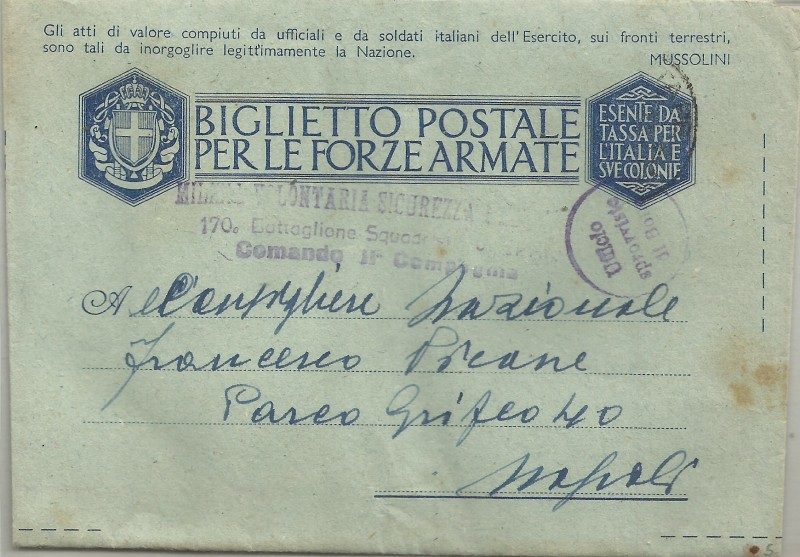 Gli atti di valore compiuti da ufficiali e da soldati italiani dell'Esercito, sui fronti terrestri,
sono tali da inorgoglire legittimamente la Nazione.
MUSSOLINI
BIGLIETTO POSTALE
PER LE FORZE ARMATE
ESENTE DA
TASSA PER
L'ITALIA E
SVE COLONIE
VOLONTARIA SICUREZZA
170º Battaglione
Comando IIª Compagnia
Ufficio
sprovvisto
di Bo
Al Consigliere Nazionale
Francesco Picone
Parco Grifeo 40
Napoli
5